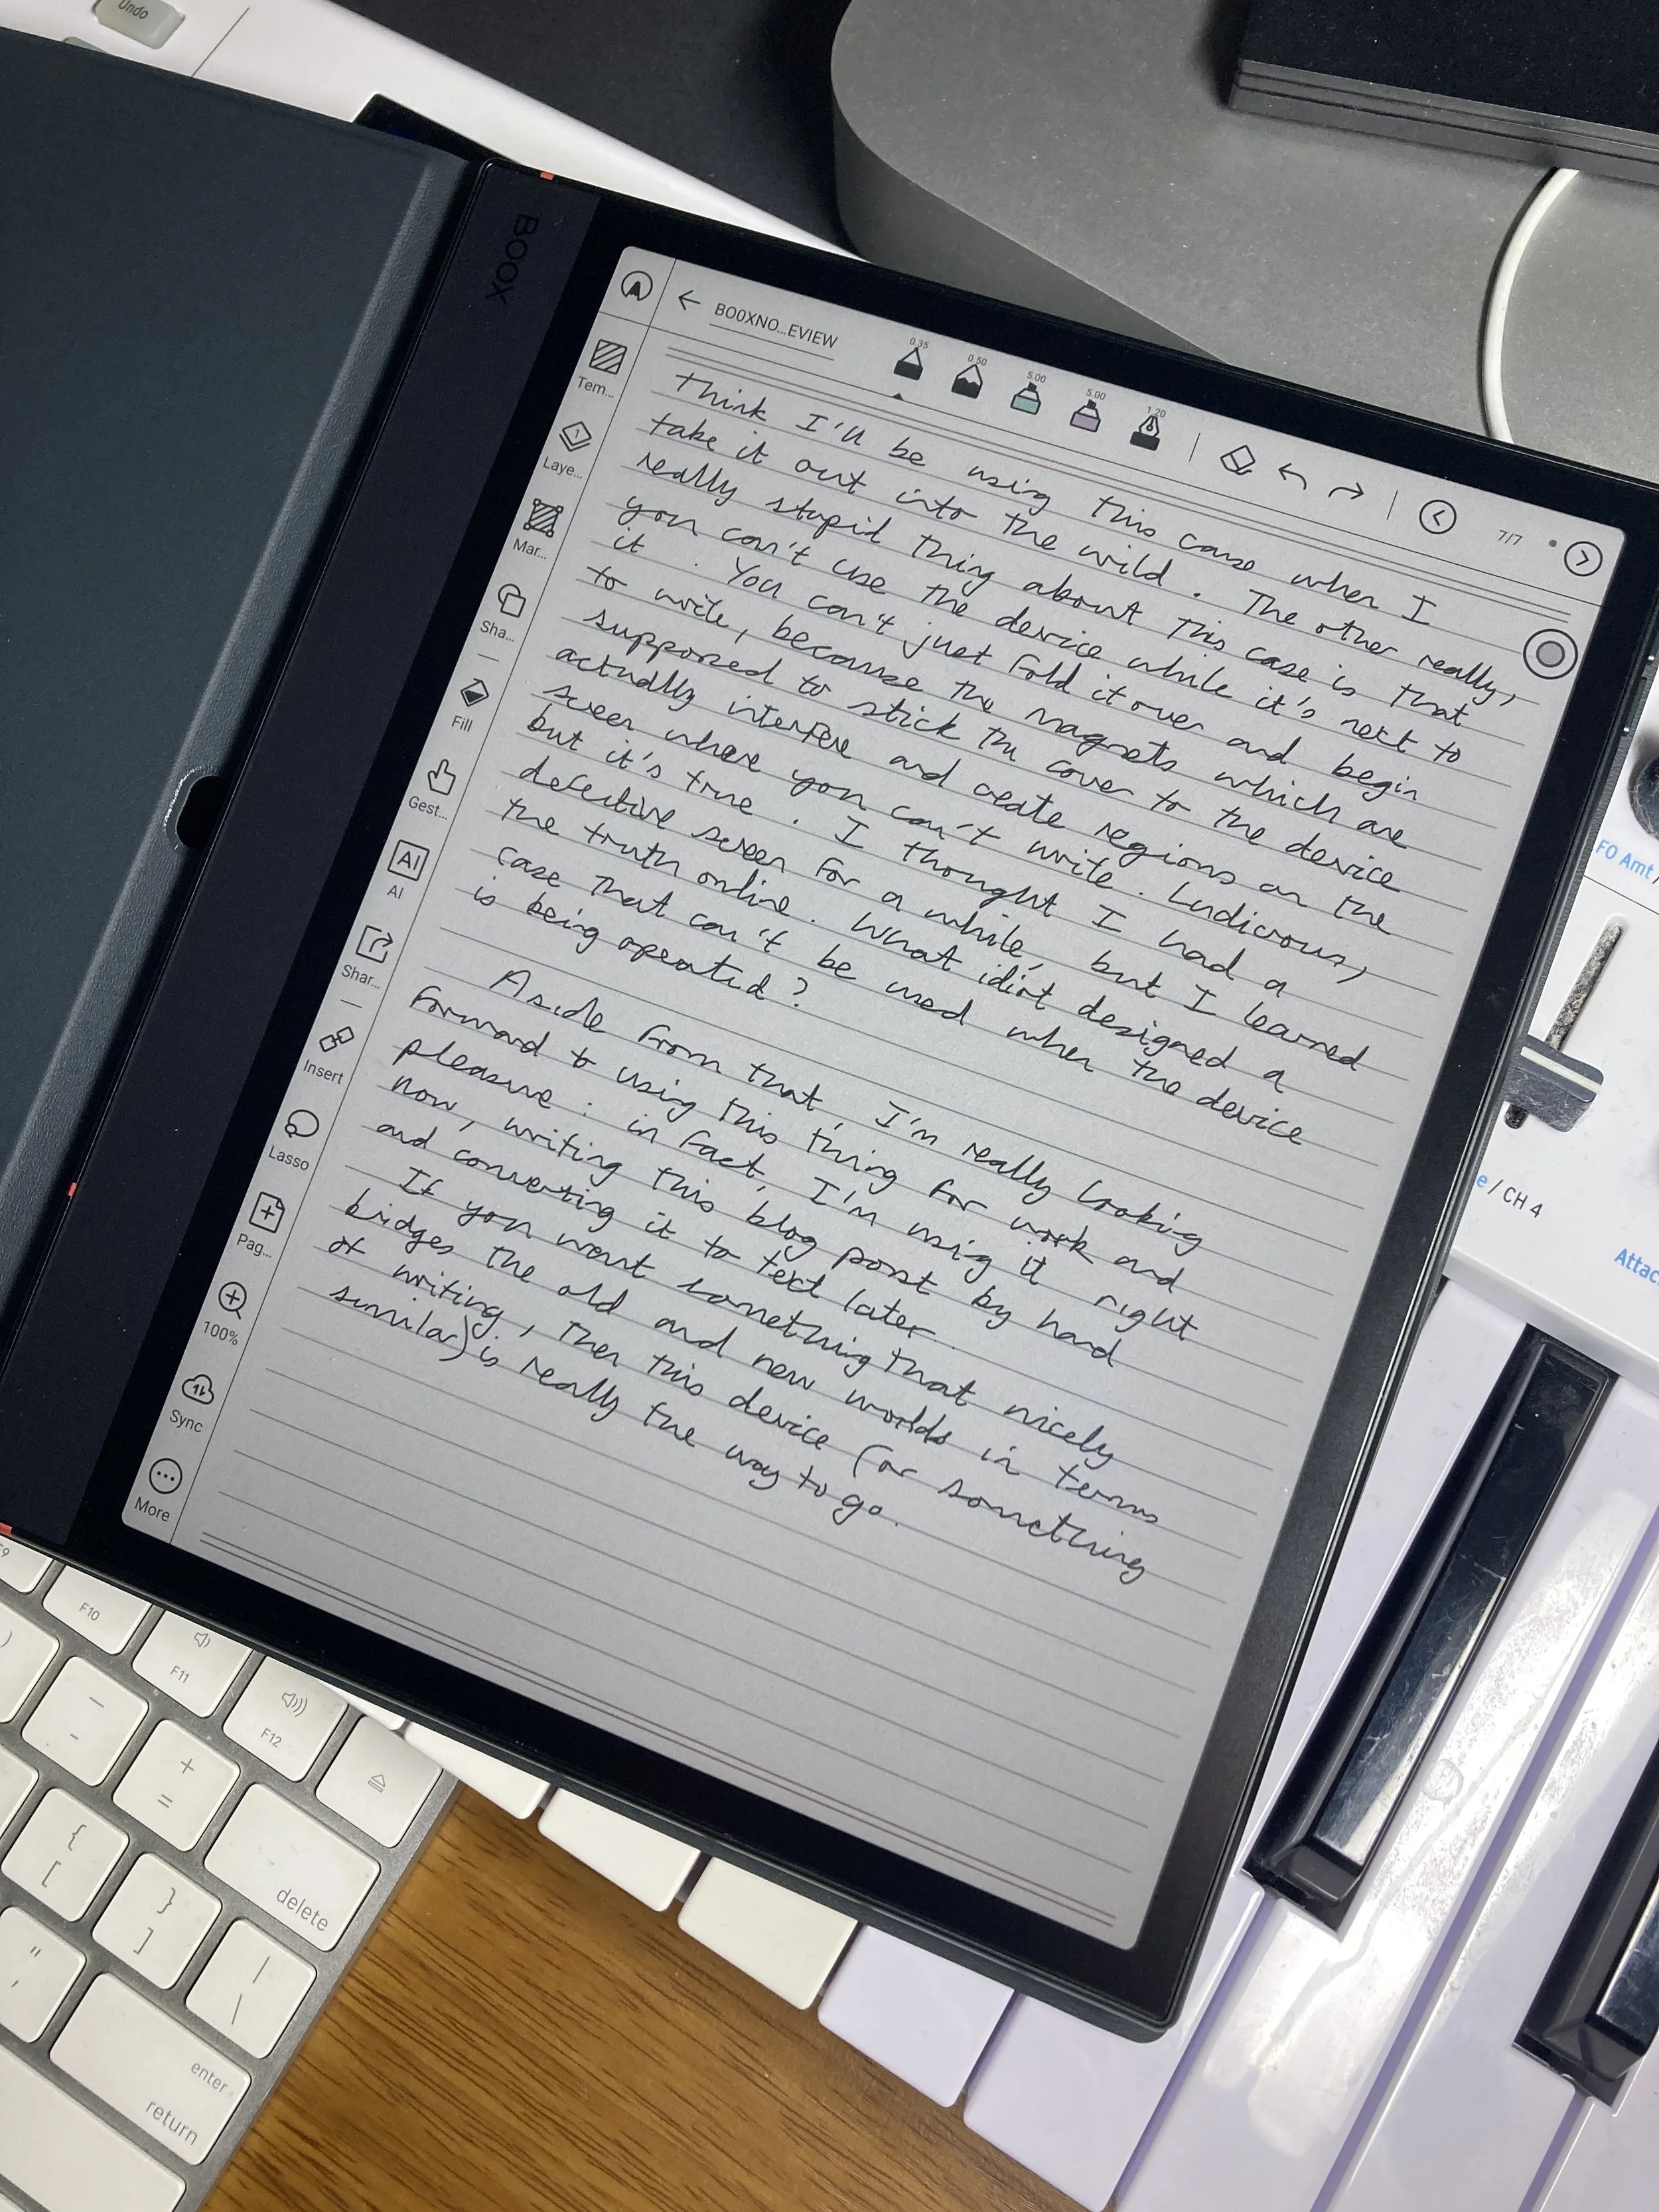 Undo
BOOX
BOOXNO...EVIEW
0.35
0.50
5.00
5.00
1.20
7/7
Tem...
Laye...
Mar...
Sha...
Fill
Gest...
AI
AI
Shar...
Insert
Lasso
Pag...
100%
Sync
More
Think I'll be using this case when I
take it out into the wild. The other really,
really stupid thing about this case is that
you can't use the device while it's next to
it. You can't just fold it over and begin
to write, because the magnets which are
supposed to stick the cover to the device
actually interfere and create regions on the
screen where you can't write. Ludicrous,
but it's true. I thought I had a
defective screen for a while, but I learned
the truth online. What idiot designed a
case that can't be used when the device
is being operated?
Aside from that, I'm really looking
forward to using this thing for work and
pleasure: in fact, I'm using it right
now, writing this blog post by hand
and converting it to text later.
If you want something that nicely
bridges the old and new worlds in terms
of writing, then this device (or something
similar) is really the way to go.
F0 Amt /
e / CH 4
Attac
F9
F10
F11
F12
-
+
=
delete
{
[
}
]
|
\
"
'
enter
return